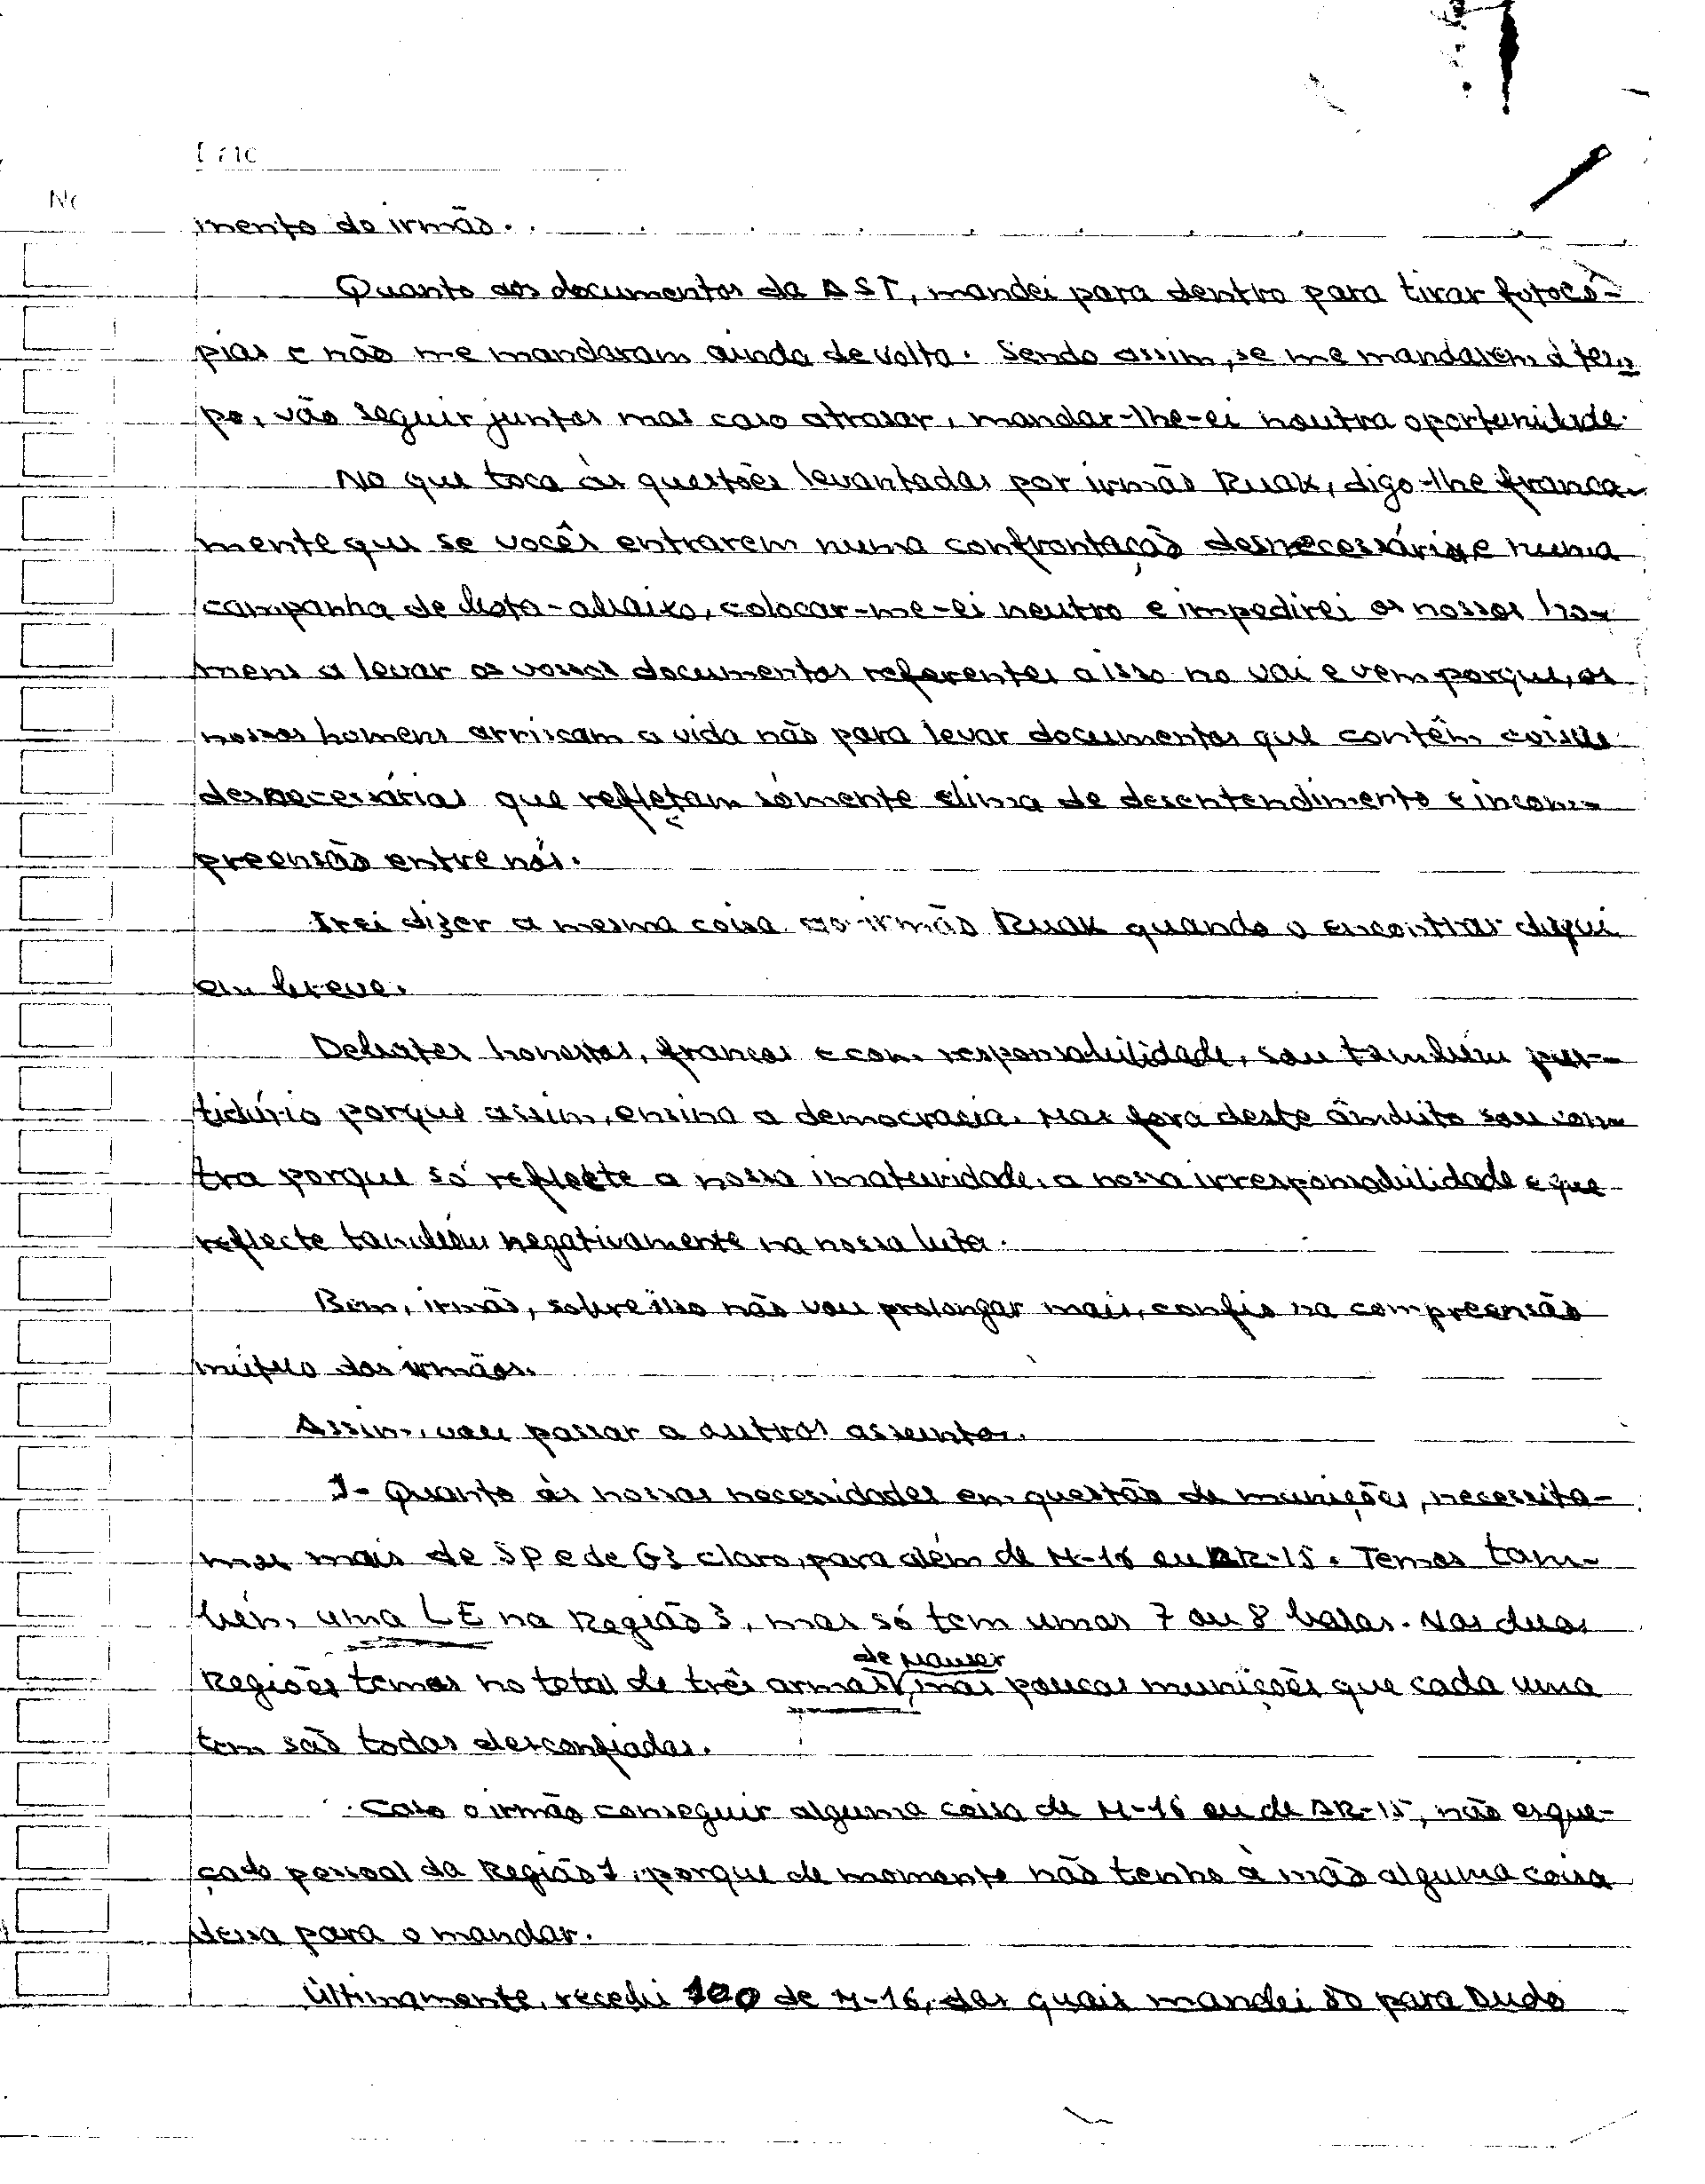 Date
No
mento do irmão.
Quanto aos documentos da AST, mandei para dentro para tirar fotocó-
pias e não me mandaram ainda de volta. Sendo assim, se me mandarem à tem
po, vão seguir juntos mas caso atrasar, mandar-lhe-ei noutra oportunidade.
No que toca às questões levantadas por irmão Ruak, digo-lhe franca-
mente que se vocês entrarem numa confrontação desnecessária e numa
campanha de bota-abaixo, colocar-me-ei neutro e impedirei os nossos ho-
mens a levar os vossos documentos referentes a isso no vai e vem porque, os
nossos homens arriscam a vida não para levar documentos que contêm coisas
desnecessárias que refletam sómente clima de desentendimento e incom-
preensão entre nós.
Irei dizer a mesma coisa ao irmão Ruak quando o encontrar daqui
em breve.
Debates honestos, francos e com responsabilidade, sou também par-
tidário porque assim, ensina a democracia. Mas fora deste âmbito sou con-
tra porque só reflecte a nossa imaturidade, a nossa irresponsabilidade e que
reflecte também negativamente na nossa luta.
Bem, irmão, sobre isso não vou prolongar mais, confio na compreensão
mútuo dos irmãos.
Assim, vou passar a outros assuntos.
1- Quanto às nossas necessidades em questão de munições, necessita-
mos mais de SP e de G3 claro, para além de M-16 ou AR-15. Temos tam-
bém, uma LE na Região 3, mas só tem umas 7 ou 8 balas. Nas duas
de Mauser
Regiões temos no total de três armas, mas poucas munições que cada uma
tem são todas desconfiadas.
Caso o irmão conseguir alguma coisa de M-16 ou de AR-15, não esque-
ça do pessoal da Região 1, porque de momento não tenho à mão alguma coisa
dessa para o mandar.
Últimamente, recebi 100 de M-16, das quais mandei 80 para Dudo